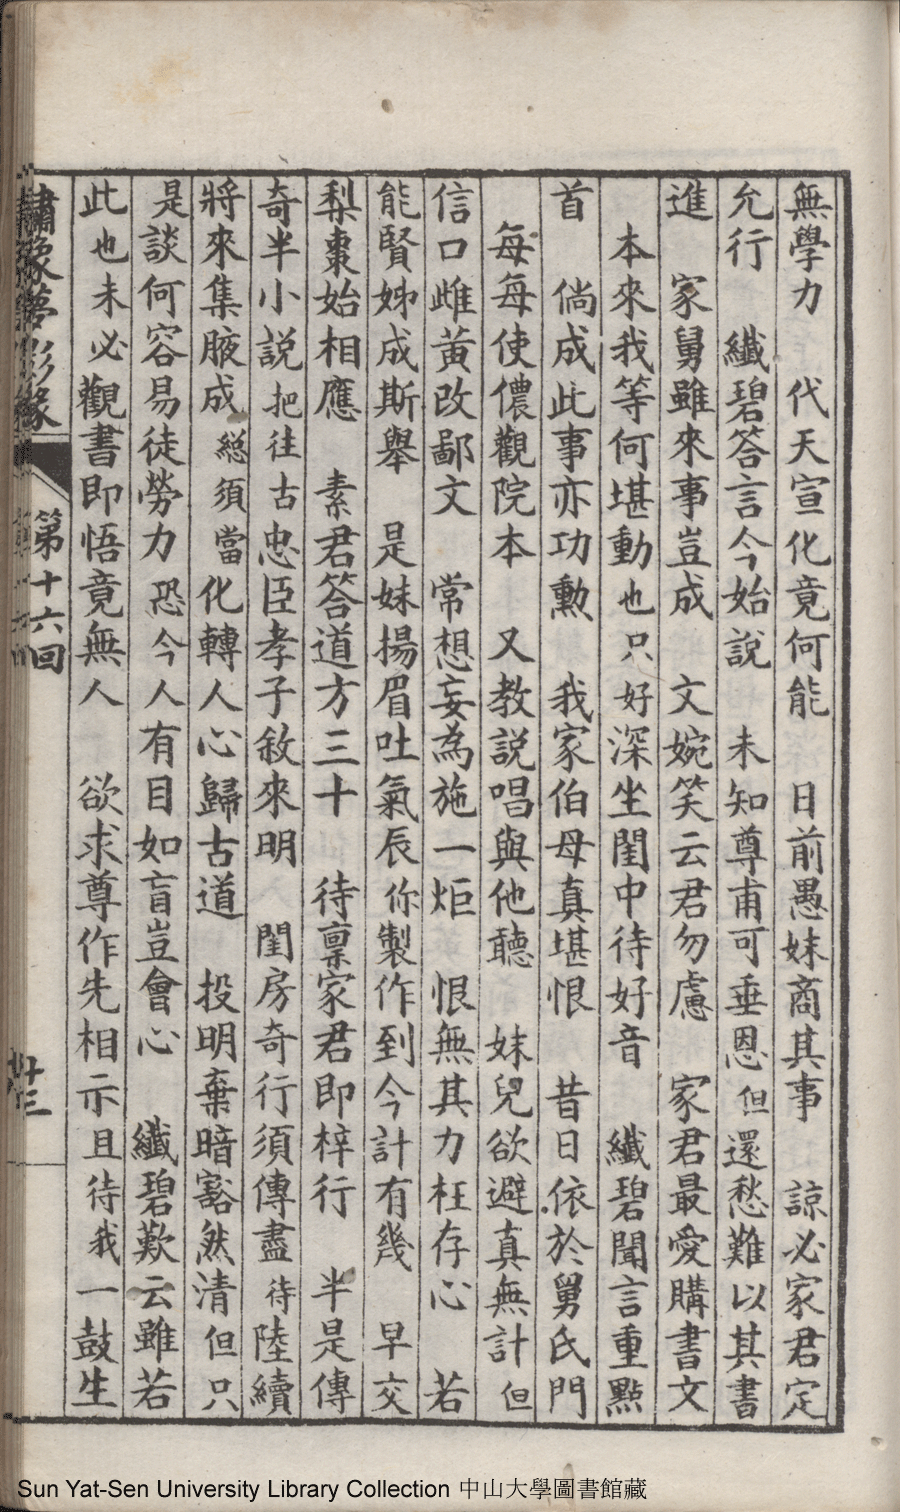 無學力　代天宣化竟何能　日前愚妹商其事　諒必家君定
允行　纖碧答言今始說　未知尊甫可垂恩但還愁難以其書
進　家舅雖來事豈成　文婉笑云君勿慮　家君最愛購書文
本來我等何堪動也只好深坐閨中待好音　纖碧聞言重點
首　倘成此事亦功勲　我家伯母真堪恨　昔日依於舅氏門
每每使儂觀院本　又教説唱與他聽　妹兒欲避真無計但
信口雌黃改鄙文　常想妄為施一炬　恨無其力枉存心　若
能賢姊成斯舉　是妹揚眉吐氣辰你製作到今計有幾　早交
梨棗始相應　素君答道方三十　待稟家君即梓行　半是傳
奇半小説把往古忠臣孝子敘來明　閨房奇行須傳盡待陸續
將來集腋成總須當化轉人心歸古道　投明棄暗豁然清但只
是談何容易徒勞力恐今人有目如盲豈會心　纖碧歎云雖若
此也未必觀書即悟竟無人　欲求尊作先相示且待我一鼓生
繡像夢影緣
第十六回
廿三
Sun Yat-Sen University Library Collection 中山大學圖書館藏